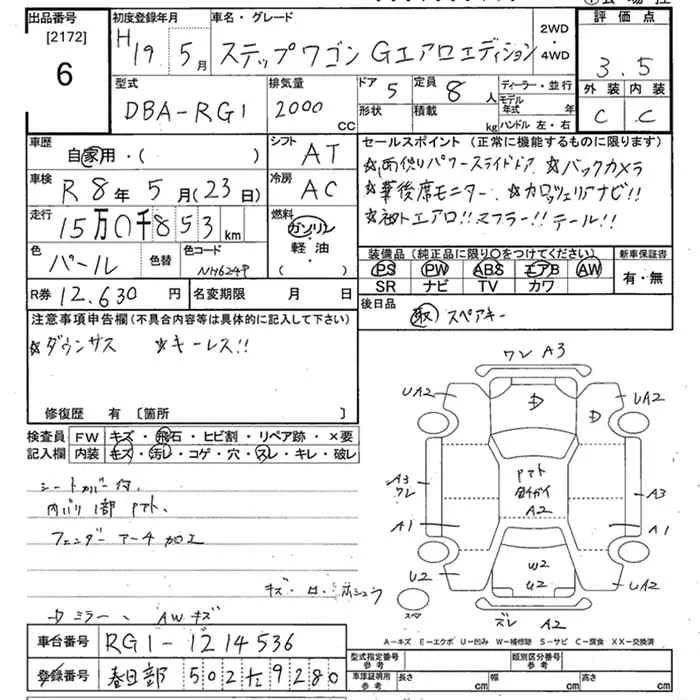 出品番号
[2172]
6
初度登録年月
H 19 5月
車名・グレード
ステップワゴン Gエアロエディション
2WD
・
4WD
評価点
3.5
外装 内装
C C
型式
DBA-RG1
排気量
2000
CC
ドア 5
形状
定員 8 人
積載 kg
ディーラー・並行
モデル年式 年
ハンドル 左・右
車歴
自家用・( )
シフト AT
車検
R 8年 5月(23日)
冷房 AC
走行
15万0千853km
燃料
ガソリン
軽・油
( )
色
パール
色替
色コード
NH624P
R券 12,630円
名変期限 月 日
セールスポイント(正常に機能するものに限ります)
☆両側パワースライドドア ☆バックカメラ
☆後席モニター ☆カロッツェリアナビ!!
エアロ!! マフラー!! テール!!
装備品(純正品に限り○をつけてください)
新車保証書
PS PW ABS エアB AW
SR ナビ TV カワ
有・無
後日品
取 スペアキー
注意事項申告欄(不具合内容等は具体的に記入して下さい)
☆ダウンサス ☆キーレス!!
修復歴 有 [箇所 ]
検査員
記入欄
FW キズ・飛石・ヒビ割・リペア跡・×要
内装 キズ・汚レ・コゲ・穴・スレ・キレ・破レ
シートカバー付
内バリ1部
フェンダーアーチ加工
キズ
ミラー、AWキズ
ワレ A3
UA2
UA2
A3
ワレ
A2
A3
A1
A1
U2
W2
U2
UA2
スペア
ズレ A2
A-キズ E-エクボ U-凹み W-補修跡 S-サビ C-腐食 XX-交換済
車台番号 RG1-1214536
登録番号 春日部 502 9280
型式指定番号
参考
類別区分番号
参考
車庫証明用
参考
長さ cm
幅 cm
高さ cm